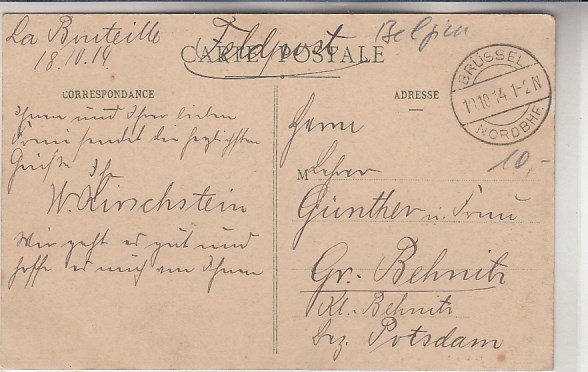 La Bouteille
18.10.14
Feldpost
Belgien
CARTE POSTALE
BRÜSSEL
18.10.14 1-2N
NORDBHF.
CORRESPONDANCE
ADRESSE
Ihnen und Ihrer lieben
Frau sendet die herzlichsten
Grüße Ihr
W. Kirschstein
Mir geht es gut und
hoffe es auch von Ihnen
Herrn
M Lehrer
Günther u. Frau
Gr. Behnitz
Kl. Behnitz
Bez. Potsdam
10,-